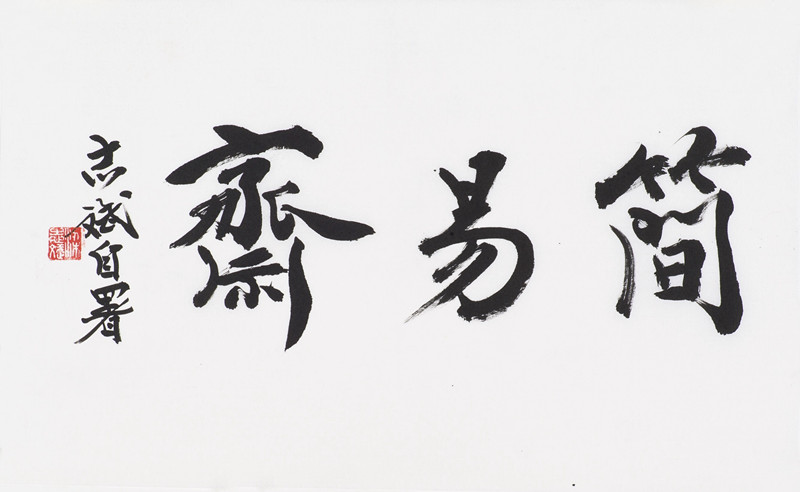 簡易齋
志斌自署